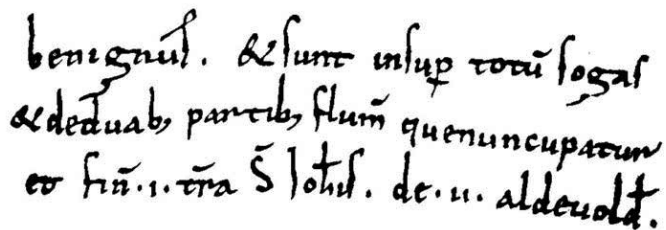 benignus. & sunt insup̱ totū sogas
& dedeuab; partib; flum̄ que nuncupatur
et fin̄.i. tr̄a S̄ Iohis. de.u. aldeuold.